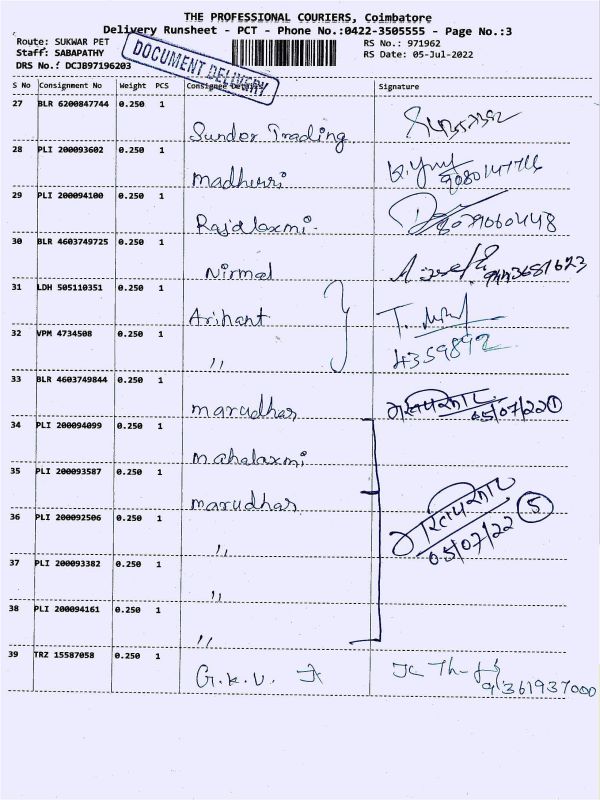 THE PROFESSIONAL COURIERS, Coimbatore
Delivery Runsheet - PCT - Phone No.:0422-3505555 - Page No.:3
Route: SUKWAR PET
RS No.: 971962
Staff: SABAPATHY
RS Date: 05-Jul-2022
DRS No.: DCJ897196203
DOCUMENT DELIVERY
S No Consignment No Weight PCS Consignee Details Signature
27 BLR 6200847744 0.250 1
Sundar Trading
28 PLI 200093602 0.250 1
madhurri
29 PLI 200094100 0.250 1
Rajalaxmi
8079060448
30 BLR 4603749725 0.250 1
Nirmal
31 LDH 505110351 0.250 1
Arihant
32 VPM 4734508 0.250 1
4359892
〃
33 BLR 4603749844 0.250 1
marudhar
05/07/22 ①
34 PLI 200094099 0.250 1
mahalaxmi
35 PLI 200093587 0.250 1
marudhar
36 PLI 200092506 0.250 1
05/07/22 ⑤
〃
37 PLI 200093382 0.250 1
〃
38 PLI 200094161 0.250 1
〃
39 TRZ 15587058 0.250 1
G.K.V.
9361937000